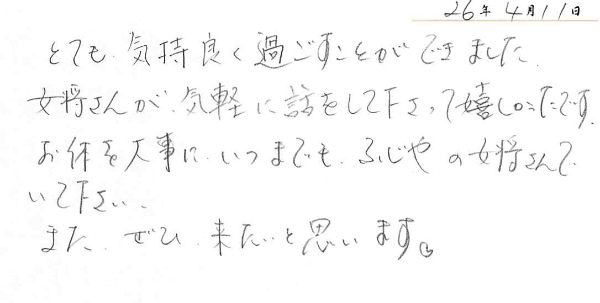 26年4月11日
とても気持良く過ごすことができました。
女将さんが、気軽に話をして下さって嬉しかったです。
お体を大事に、いつまでも、ふじやの女将さんで
いて下さい。
また、ぜひ、来たいと思います。